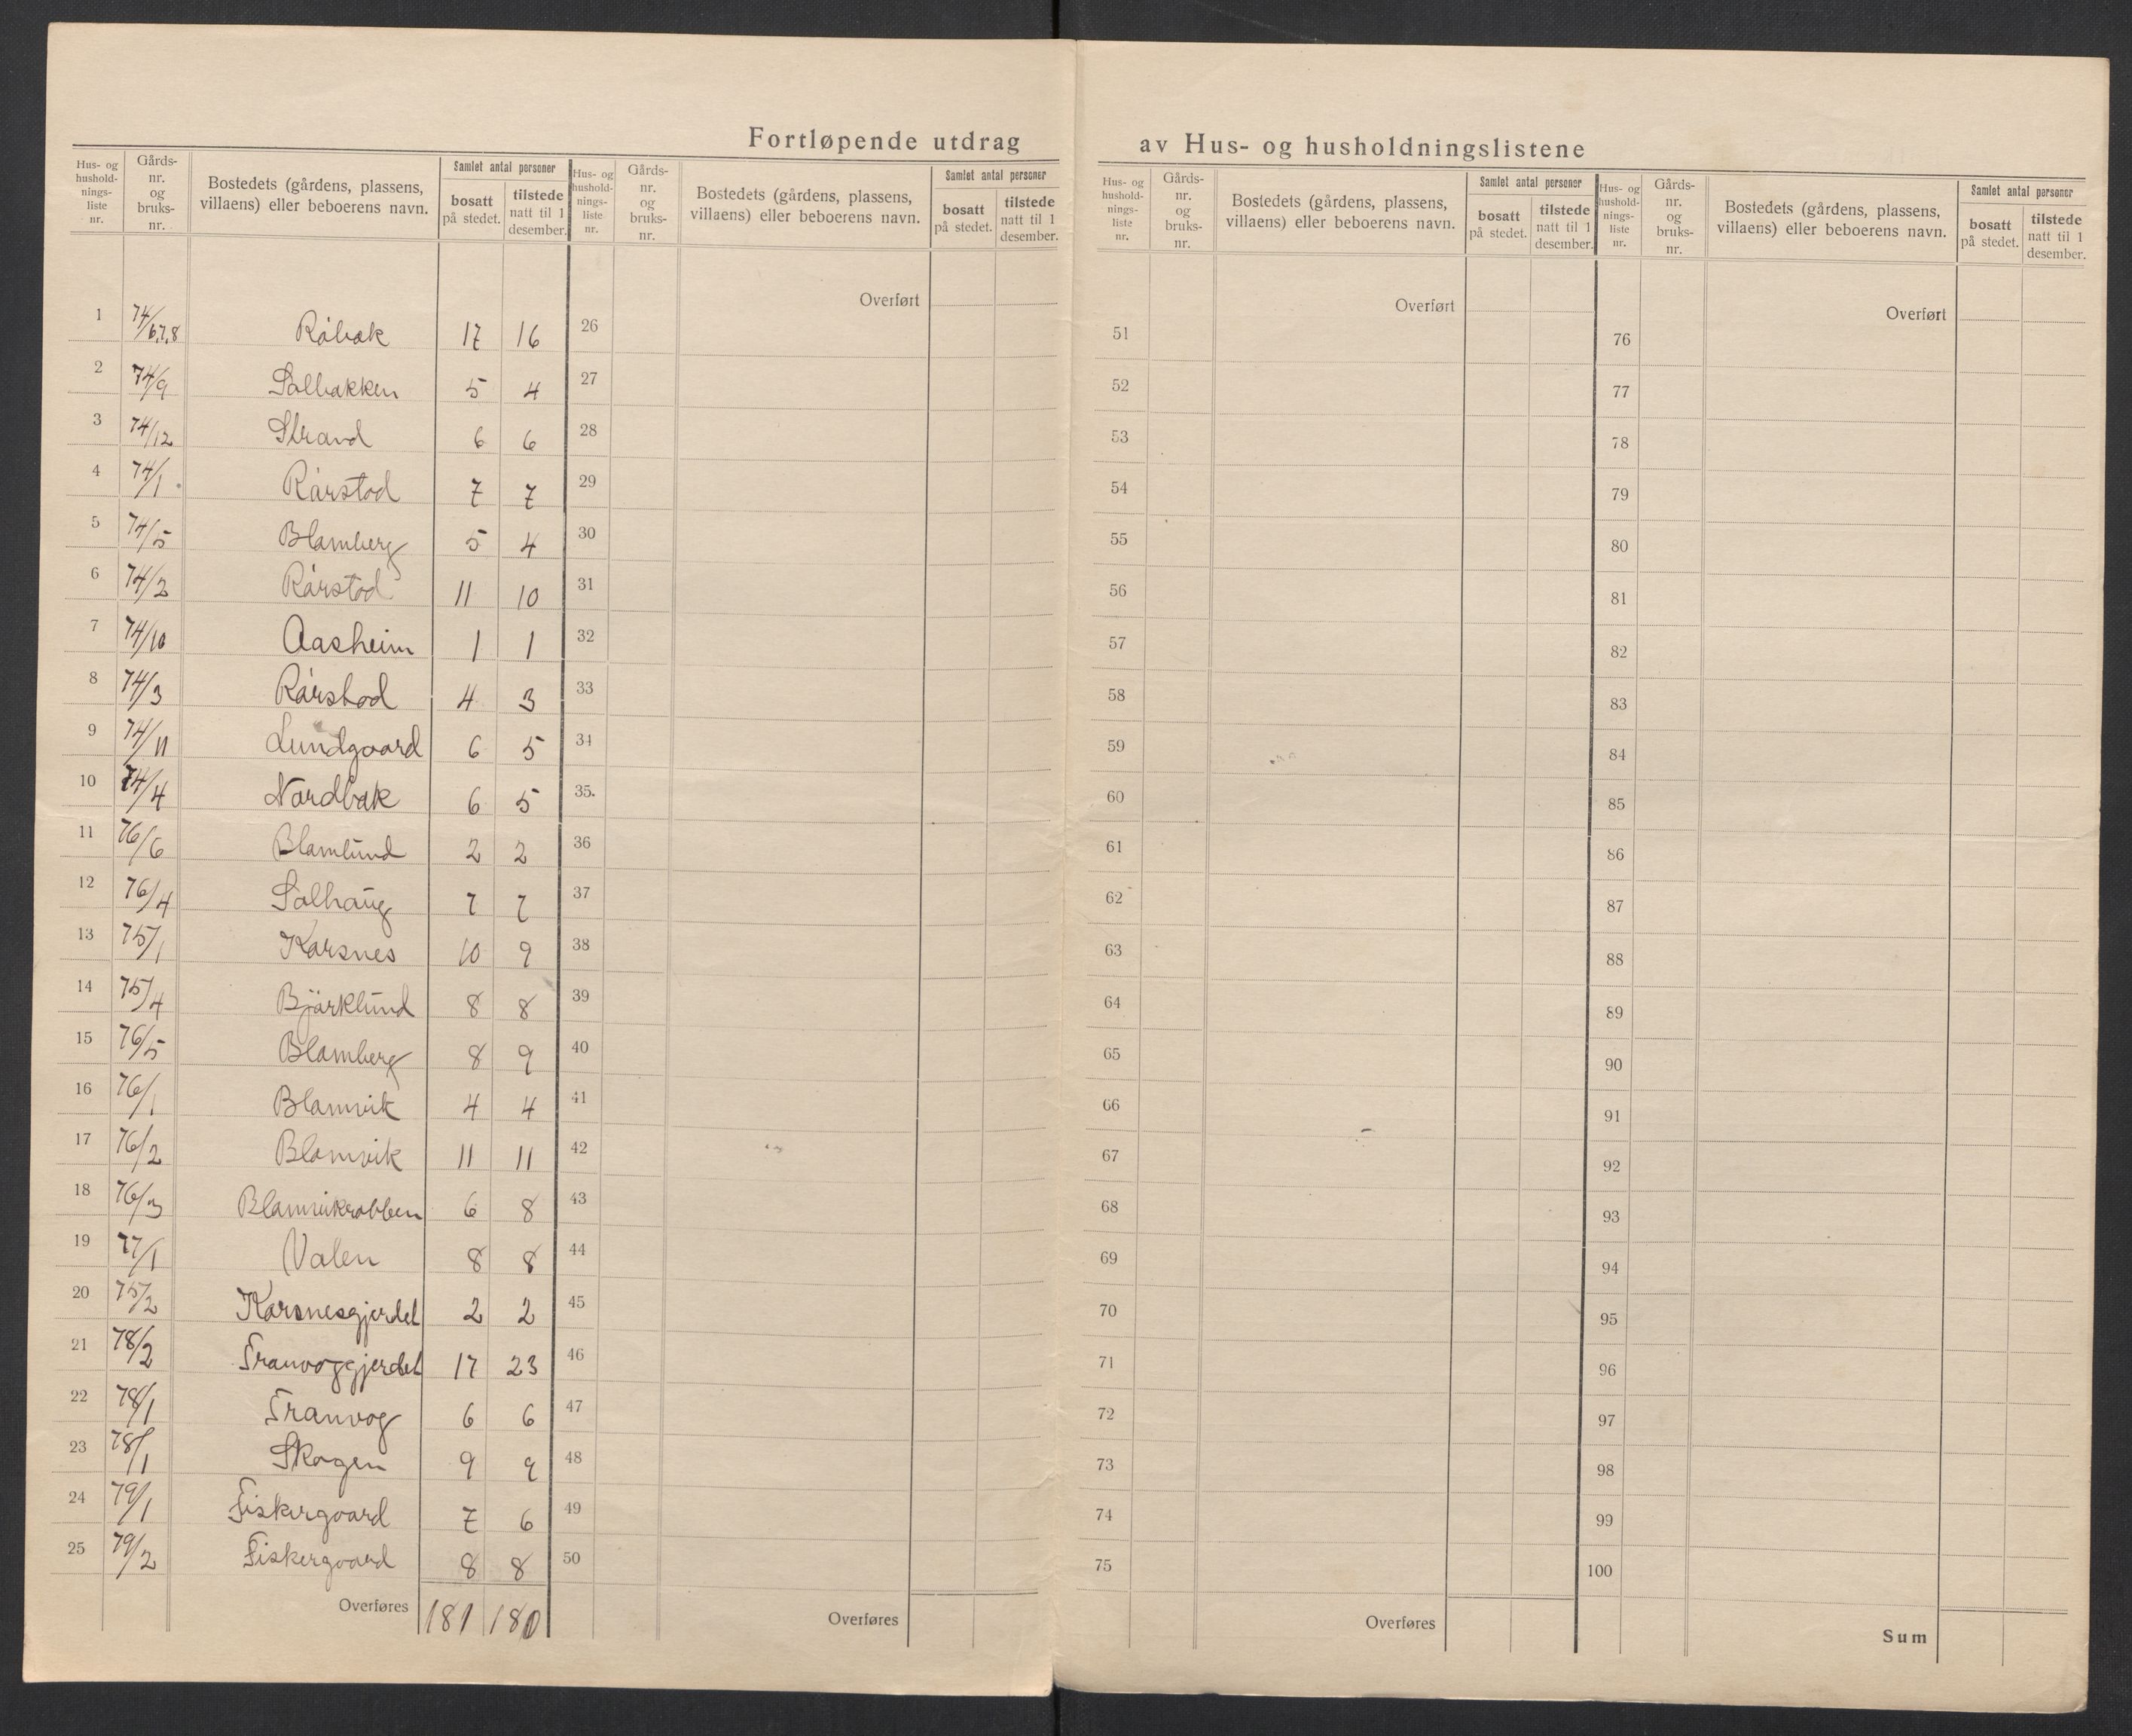 Fortløpende utdrag av Hus- og husholdningslistene
Hus- og husholdnings-liste nr. Gårds-nr. og bruks-nr. Bostedets (gårdens, plassens, villaens) eller beboerens navn. Samlet antal personer bosatt på stedet. tilstede natt til 1 desember.
Hus- og husholdnings-liste nr. Gårds-nr. og bruks-nr. Bostedets (gårdens, plassens, villaens) eller beboerens navn. Samlet antal personer bosatt på stedet. tilstede natt til 1 desember.
Hus- og husholdnings-liste nr. Gårds-nr. og bruks-nr. Bostedets (gårdens, plassens, villaens) eller beboerens navn. Samlet antal personer bosatt på stedet. tilstede natt til 1 desember.
Hus- og husholdnings-liste nr. Gårds-nr. og bruks-nr. Bostedets (gårdens, plassens, villaens) eller beboerens navn. Samlet antal personer bosatt på stedet. tilstede natt til 1 desember.
1 74/6,7,8 Råbak 17 16
2 74/9 Solbakken 5 4
3 74/12 Strand 6 6
4 74/1 Rårstad 7 7
5 74/5 Blomberg 5 4
6 74/2 Rårstad 11 10
7 74/10 Aasheim 1 1
8 74/3 Rårstad 4 3
9 74/11 Lundgaard 6 5
10 74/4 Nordbak 6 5
11 76/6 Blamlund 2 2
12 76/4 Solhaug 7 7
13 75/1 Korsnes 10 9
14 75/4 Björklund 8 8
15 76/5 Blomberg 8 9
16 76/1 Blamvik 4 4
17 76/2 Blamvik 11 11
18 76/3 Blamvikrabben 6 8
19 77/1 Valen 8 8
20 75/2 Korsnesgjerdet 2 2
21 78/2 Tranvoggjerdet 17 23
22 78/1 Tranvog 6 6
23 78/1 Skogen 9 9
24 79/1 Fiskergaard 7 6
25 79/2 Fiskergaard 8 8
Overføres 181 180
Overført
26
27
28
29
30
31
32
33
34
35.
36
37
38
39
40
41
42
43
44
45
46
47
48
49
50
Overføres
Overført
51
52
53
54
55
56
57
58
59
60
61
62
63
64
65
66
67
68
69
70
71
72
73
74
75
Overføres
Overført
76
77
78
79
80
81
82
83
84
85
86
87
88
89
90
91
92
93
94
95
96
97
98
99
100
Sum